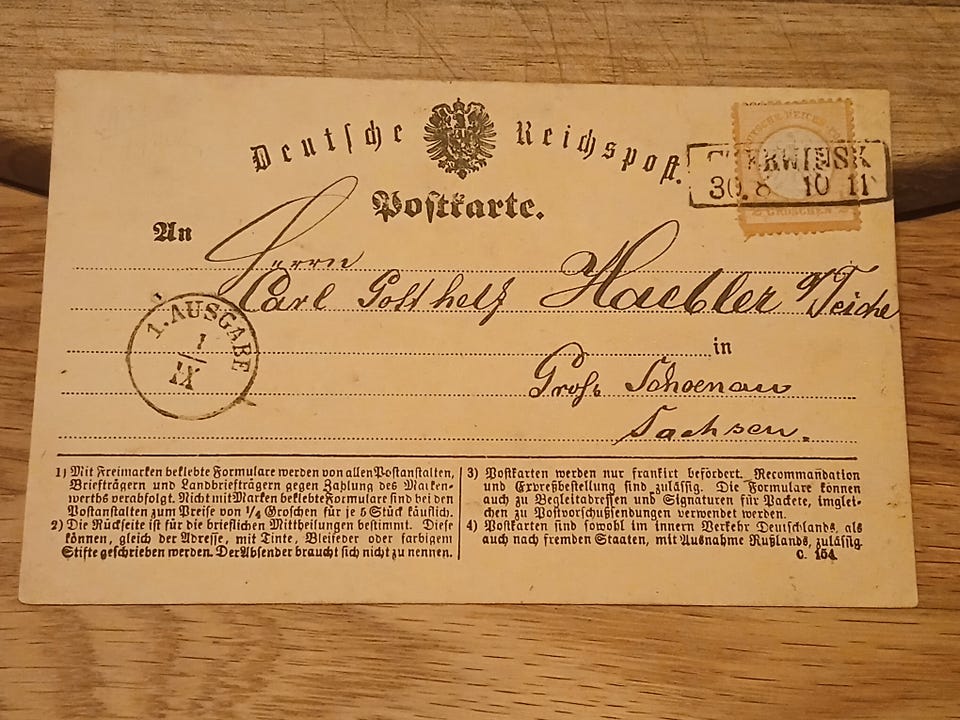 Deutsche Reichspost.
Postkarte.
DEUTSCHE REICHS
30.8 10 11
GROSCHEN
An
Herrn
Carl Gotthelf Haebler
in
Groß Schoenau
Sachsen.
1. AUSGABE
1
IX
1) Mit Freimarken beklebte Formulare werden von allen Postanstalten,
Briefträgern und Landbriefträgern gegen Zahlung des Marken-
werths verabfolgt. Nicht mit Marken beklebte Formulare sind bei den
Postanstalten zum Preise von 1/4 Groschen für je 5 Stück käuflich.
2) Die Rückseite ist für die brieflichen Mittheilungen bestimmt. Diese
können, gleich der Adresse, mit Tinte, Bleifeder oder farbigem
Stifte geschrieben werden. Der Absender braucht sich nicht zu nennen.
3) Postkarten werden nur frankirt befördert. Recommandation
und Expreßbestellung sind zulässig. Die Formulare können
auch zu Begleitadressen und Signaturen für Packete, inglei-
chen zu Postvorschußsendungen verwendet werden.
4) Postkarten sind sowohl im innern Verkehr Deutschlands, als
auch nach fremden Staaten, mit Ausnahme Rußlands, zulässig.
C. 154.